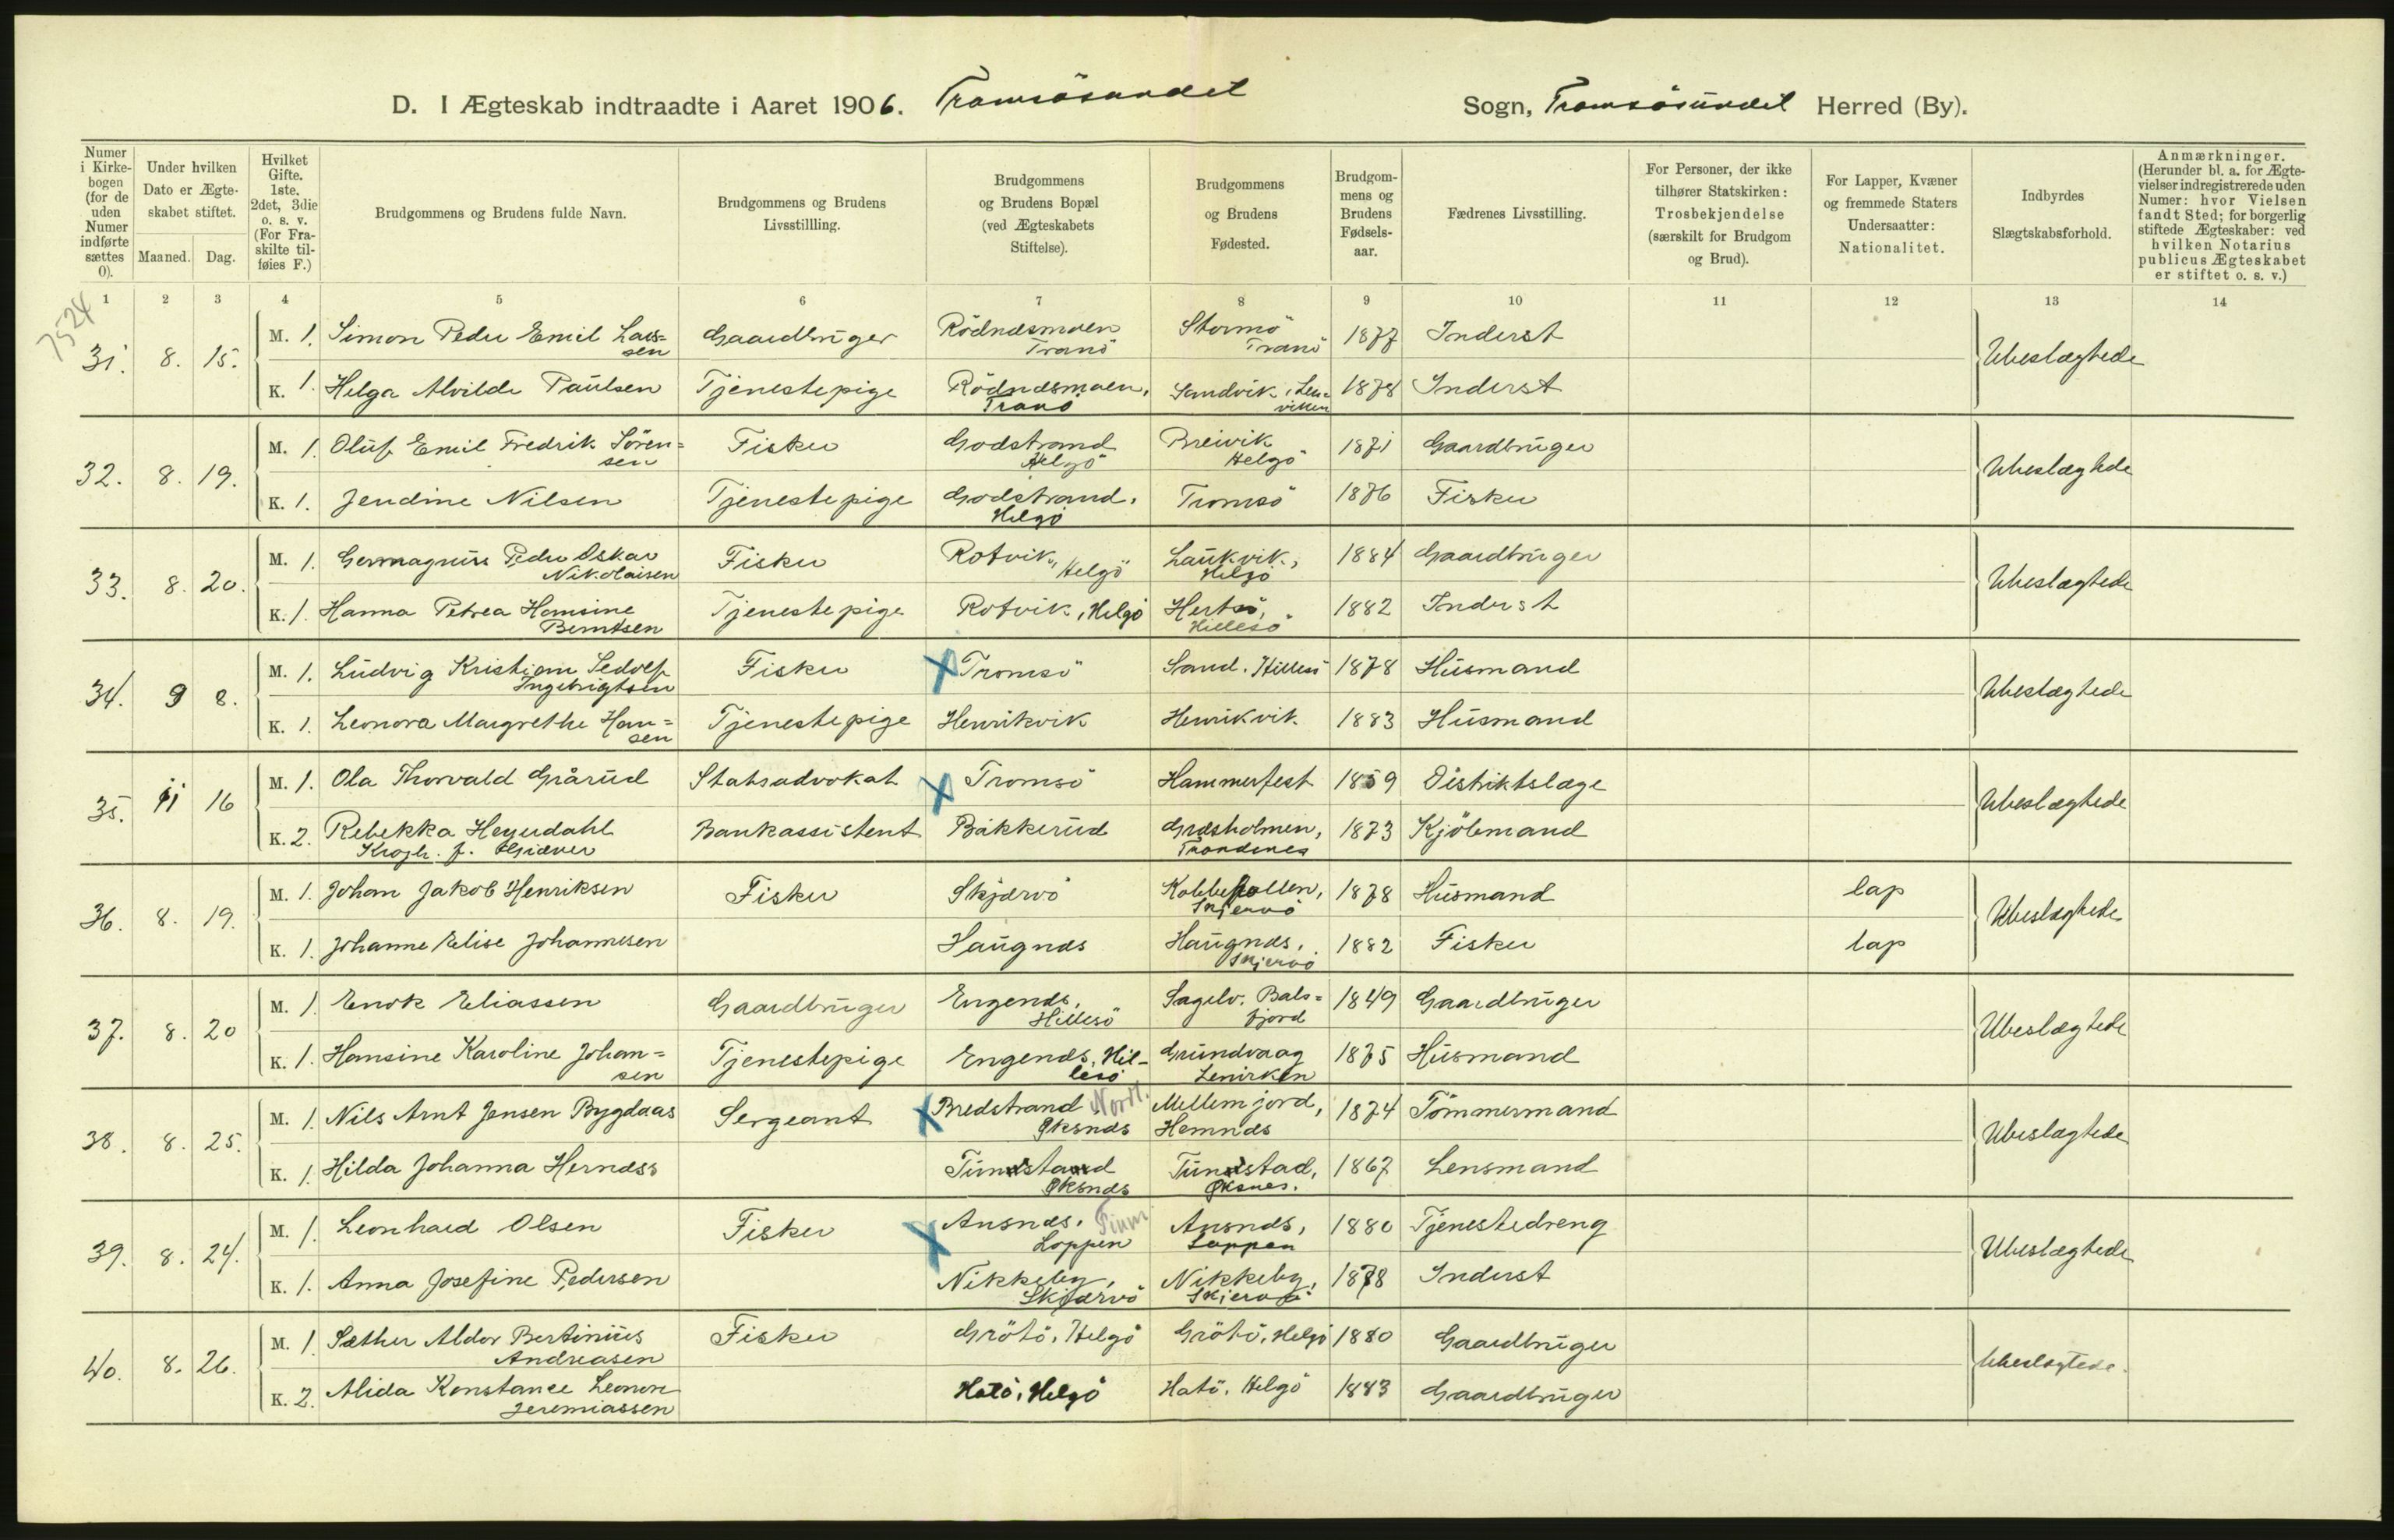 D. I Ægteskab indtraadte i Aaret 1906. Tromsösundet Sogn, Tromsösundet Herred (By).
Numer i Kirkebogen (for de uden Numer indførte sættes 0).
Under hvilken Dato er Ægteskabet stiftet.
Maaned. Dag.
Hvilket Gifte. 1ste, 2det, 3die o. s. v. (For Fraskilte tilføies F.)
Brudgommens og Brudens fulde Navn.
Brudgommens og Brudens Livsstillling.
Brudgommens og Brudens Bopæl (ved Ægteskabets Stiftelse).
Brudgommens og Brudens Fødested.
Brudgommens og Brudens Fødselsaar.
Fædrenes Livsstilling.
For Personer, der ikke tilhører Statskirken: Trosbekjendelse (særskilt for Brudgom og Brud).
For Lapper, Kvæner og fremmede Staters Undersaatter: Nationalitet.
Indbyrdes Slægtskabsforhold.
Anmærkninger. (Herunder bl. a. for Ægtevielser indregistrerede uden Numer: hvor Vielsen fandt Sted; for borgerlig stiftede Ægteskaber: ved hvilken Notarius publicus Ægteskabet er stiftet o. s. v.)
1 2 3 4 5 6 7 8 9 10 11 12 13 14
7524
31. 8. 15. M. 1. Simon Peder Emil Larssen Gaardbruger Rödnæsmoen Tranö Stormö Tranö 1877 Inderst Ubeslægtede
K. 1. Helga Alvilde Paulsen Tjenestepige Rödnæsmoen, Tranö Sandvik, Lenviken 1878 Inderst
32. 8. 19. M. 1. Oluf Emil Fredrik Sörensen Fisker Godstrand Helgö Breivik Helgö 1871 Gaardbruger Ubeslægtede
K. 1. Jendine Nilsen Tjenestepige Godstrand, Helgö Tromsö 1876 Fisker
33. 8. 20. M. 1. Germagnus Peder Oskar Nikolaisen Fisker Rotvik, Helgö Laukvik, Helgö 1884 Gaardbruger Ubeslægtede
K. 1. Hanna Petrea Hansine Berntsen Tjenestepige Rotvik, Helgö Hertö, Hillesö 1882 Inderst
34. 9 8. M. 1. Ludvig Kristian Sedolf Ingebrigtsen Fisker Tromsö Sand. Hillesö 1878 Husmand Ubeslægtede
K. 1. Leonora Margrethe Hansen Tjenestepige Henrikvik Henrikvik 1883 Husmand
35. 11 16 M. 1. Ola Thorvald Grårud Statsadvokat Tromsö Hammerfest 1859 Distriktslæge Ubeslægtede
K. 2. Rebekka Heyerdahl Krogh. f. Giæver Bankassistent Bakkerud Græsholmen, Trondenes 1873 Kjöbmand
36. 8. 19. M. 1. Johan Jakob Henriksen Fisker Skjærvö Kobbepollen, Skjervö 1878 Husmand lap Ubeslægtede
K. 1. Johanne Elise Johannesen Haugnæs Haugnæs, Skjervö 1882 Fisker lap
37. 8. 20 M. 1. Enok Eliassen Gaardbruger Engenæs, Hillesö Sagelv. Balsfjord 1849 Gaardbruger Ubeslægtede
K. 1. Hansine Karoline Johansen Tjenestepige Engenæs, Hillesö Grundvaag Lenviken 1875 Husmand
38. 8. 25. M. 1. Nils Arnt Jensen Bygdaas Sergeant Bredstrand Nordl. Øksnæs Mellemjord, Hemnæs 1874 Tömmermand Ubeslægtede
K. 1. Hilda Johanna Hernæss Tunstad Øksnæs Tunstad, Øksnes. 1867 Lensmand
39. 8. 24. M. 1. Leonhard Olsen Fisker Ansnæs, Finm. Loppen Ansnæs, Loppen 1880 Tjenestedreng Ubeslægtede
K. 1. Anna Josefine Pedersen Nikkeby, Skjærvö Nikkeby, Skjervö 1878 Inderst
40. 8. 26. M. 1. Sæther Aldor Bertinius Andreasen Fisker Grötö, Helgö Grötö, Helgö 1880 Gaardbruger Ubeslægtede.
K. 2. Alida Konstance Leonore Jeremiassen Hatö, Helgö Hatö, Helgö 1883 Gaardbruger